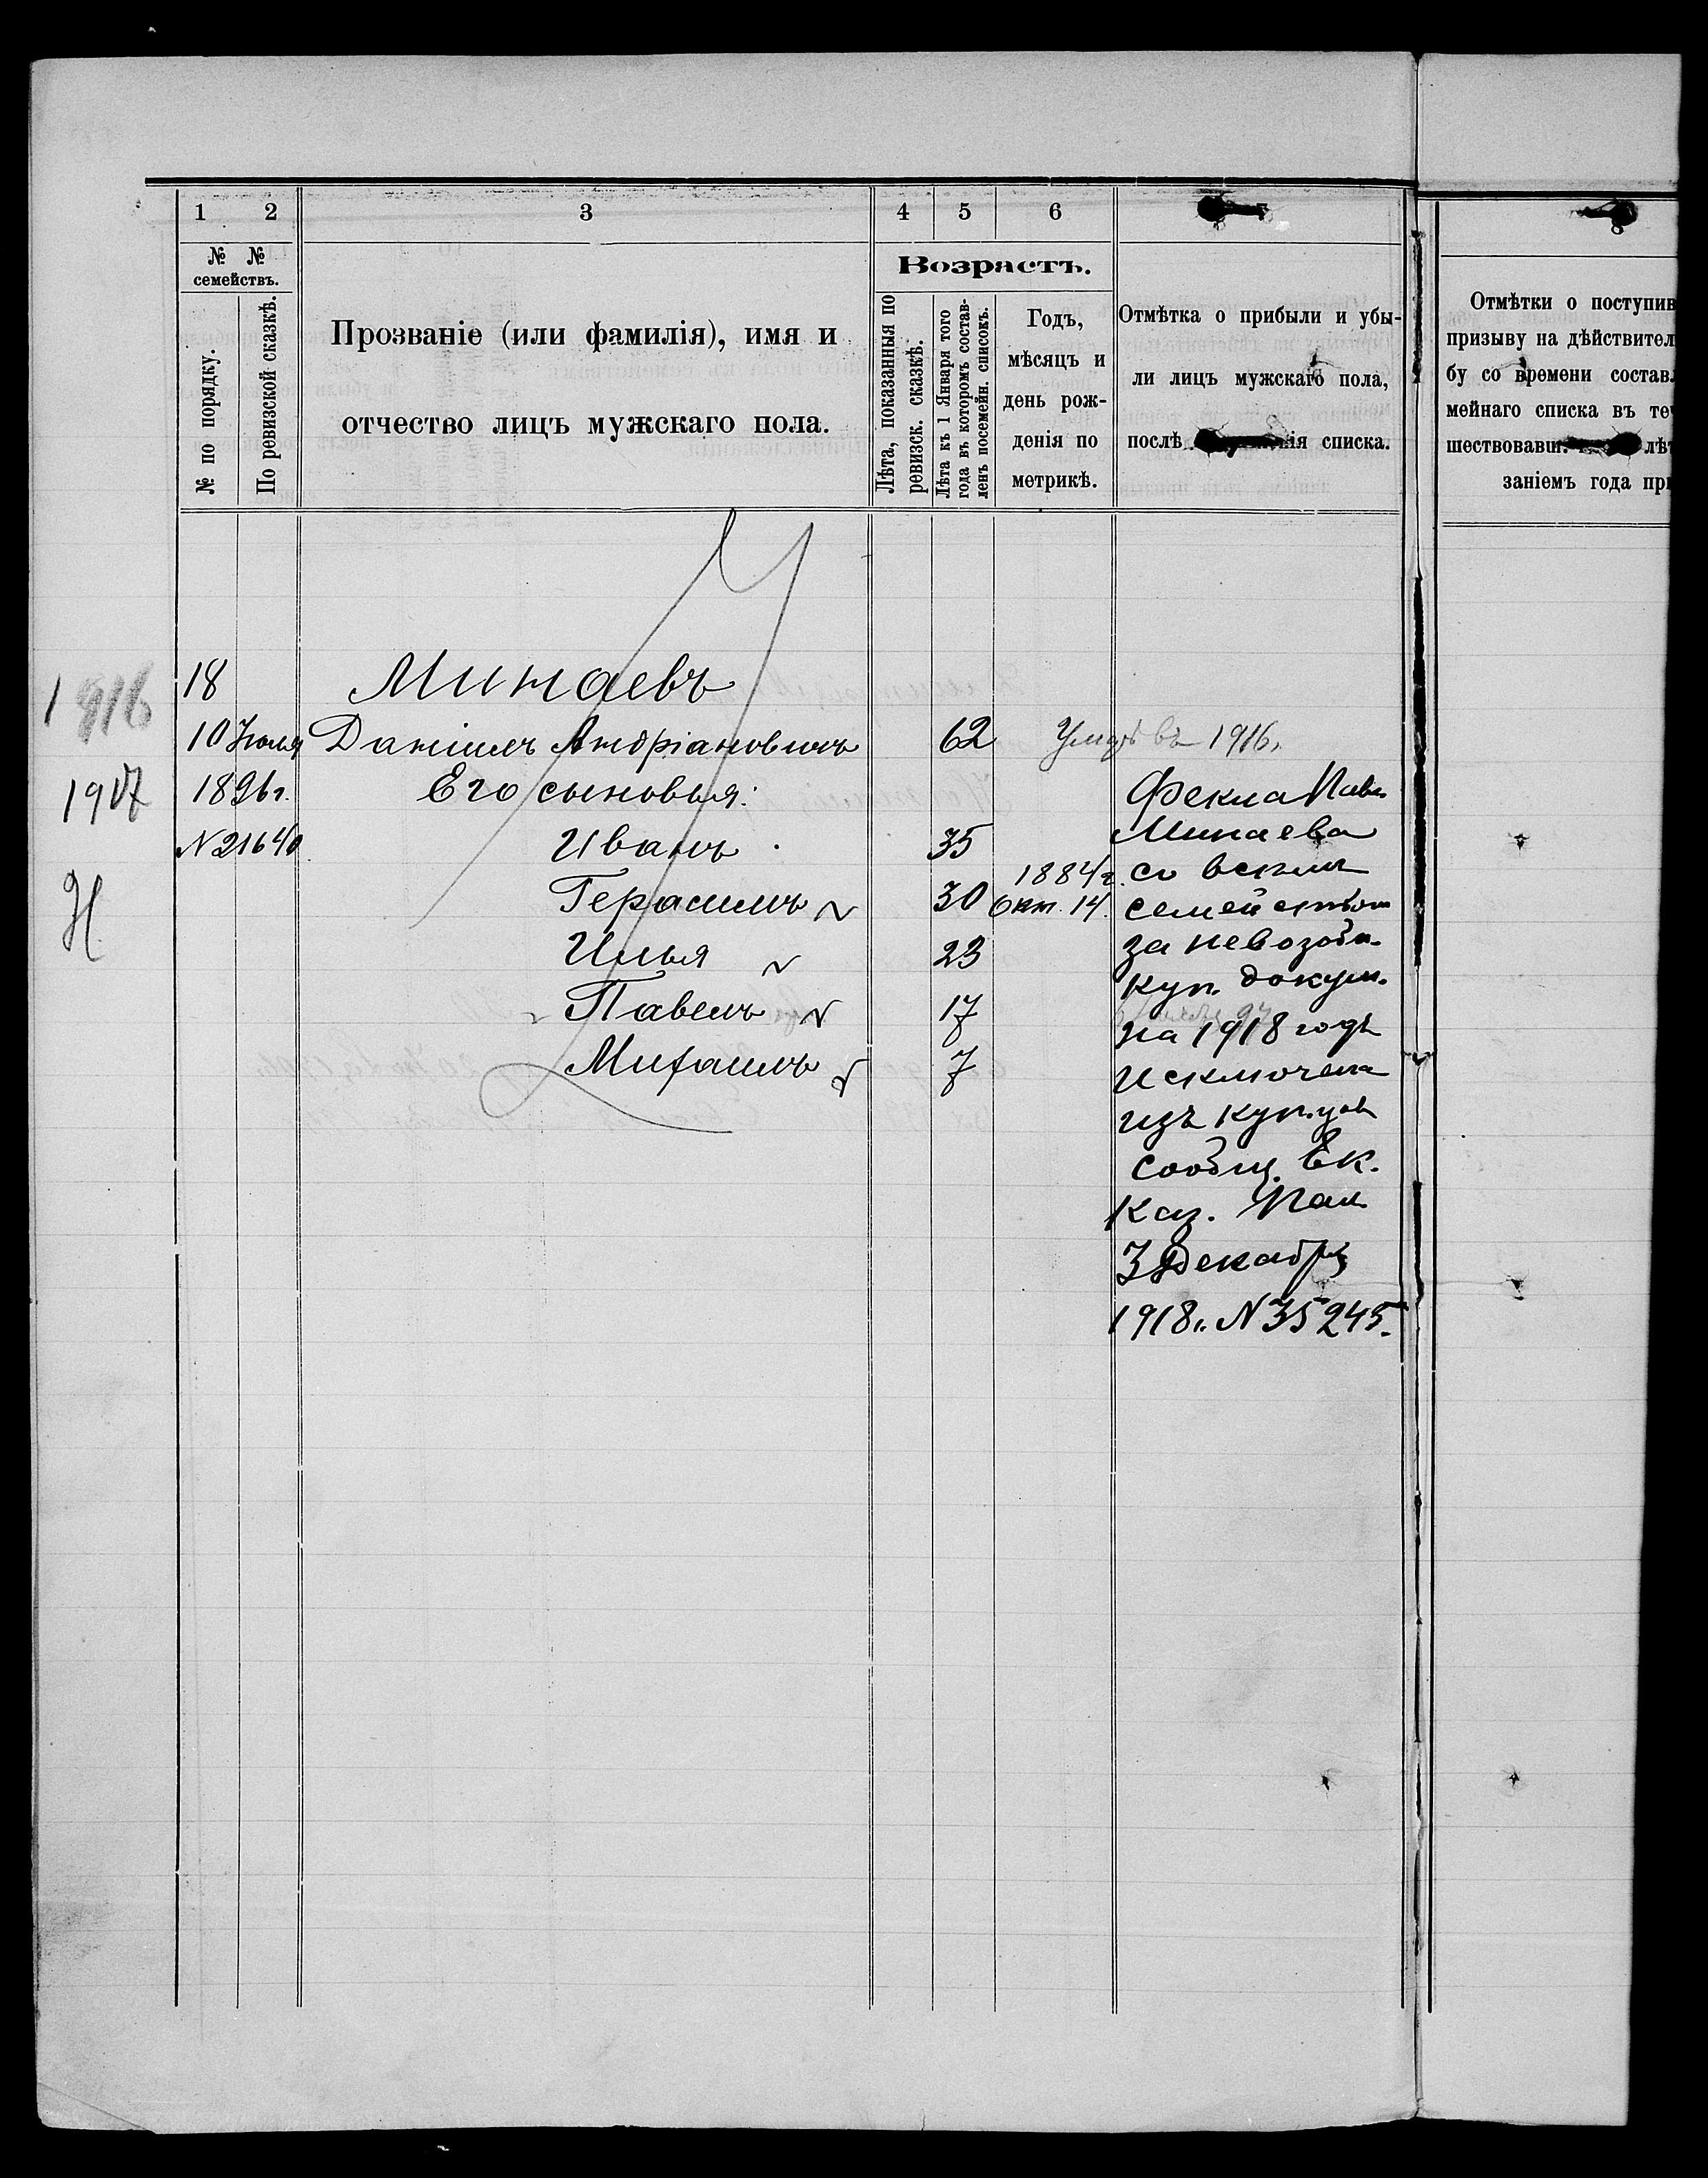 1 2 3 4 5 6 7 8
№ № семействъ.
№ по порядку.
По ревизской сказкѣ.
Прозваніе (или фамилія), имя и
отчество лицъ мужскаго пола.
Возрастъ.
Лѣта, показанныя по
ревизск. сказкѣ.
Лѣта къ 1 Января того
года въ которомъ состав-
ленъ посемейн. списокъ.
Годъ,
мѣсяцъ и
день рож-
денія по
метрикѣ.
Отмѣтка о прибыли и убы-
ли лицъ мужскаго пола,
послѣ списка.
Отмѣтки о поступив
призыву на дѣйствител
бу со времени состав
мейнаго списка въ те
шествовавш. лѣт
заніемъ года при
1916 18 Минаевъ
10 Іюля Даніилъ Андріановичъ 62 Умеръ въ 1916.
1917 1896 г. Его сыновья:
№ 21640 Иванъ 35
Н
Герасимъ 30 1884 г.
Окт. 14.
Илья 23
Павелъ 17
Михаилъ 7
Фекла Павл.
Минаева
со всѣмъ
семействомъ
за невозобн.
куп. докум.
на 1918 годъ
исключена
изъ купцовъ
сообщ. Ек.
Каз. Пал.
3 Декабря
1918 г. № 35245.